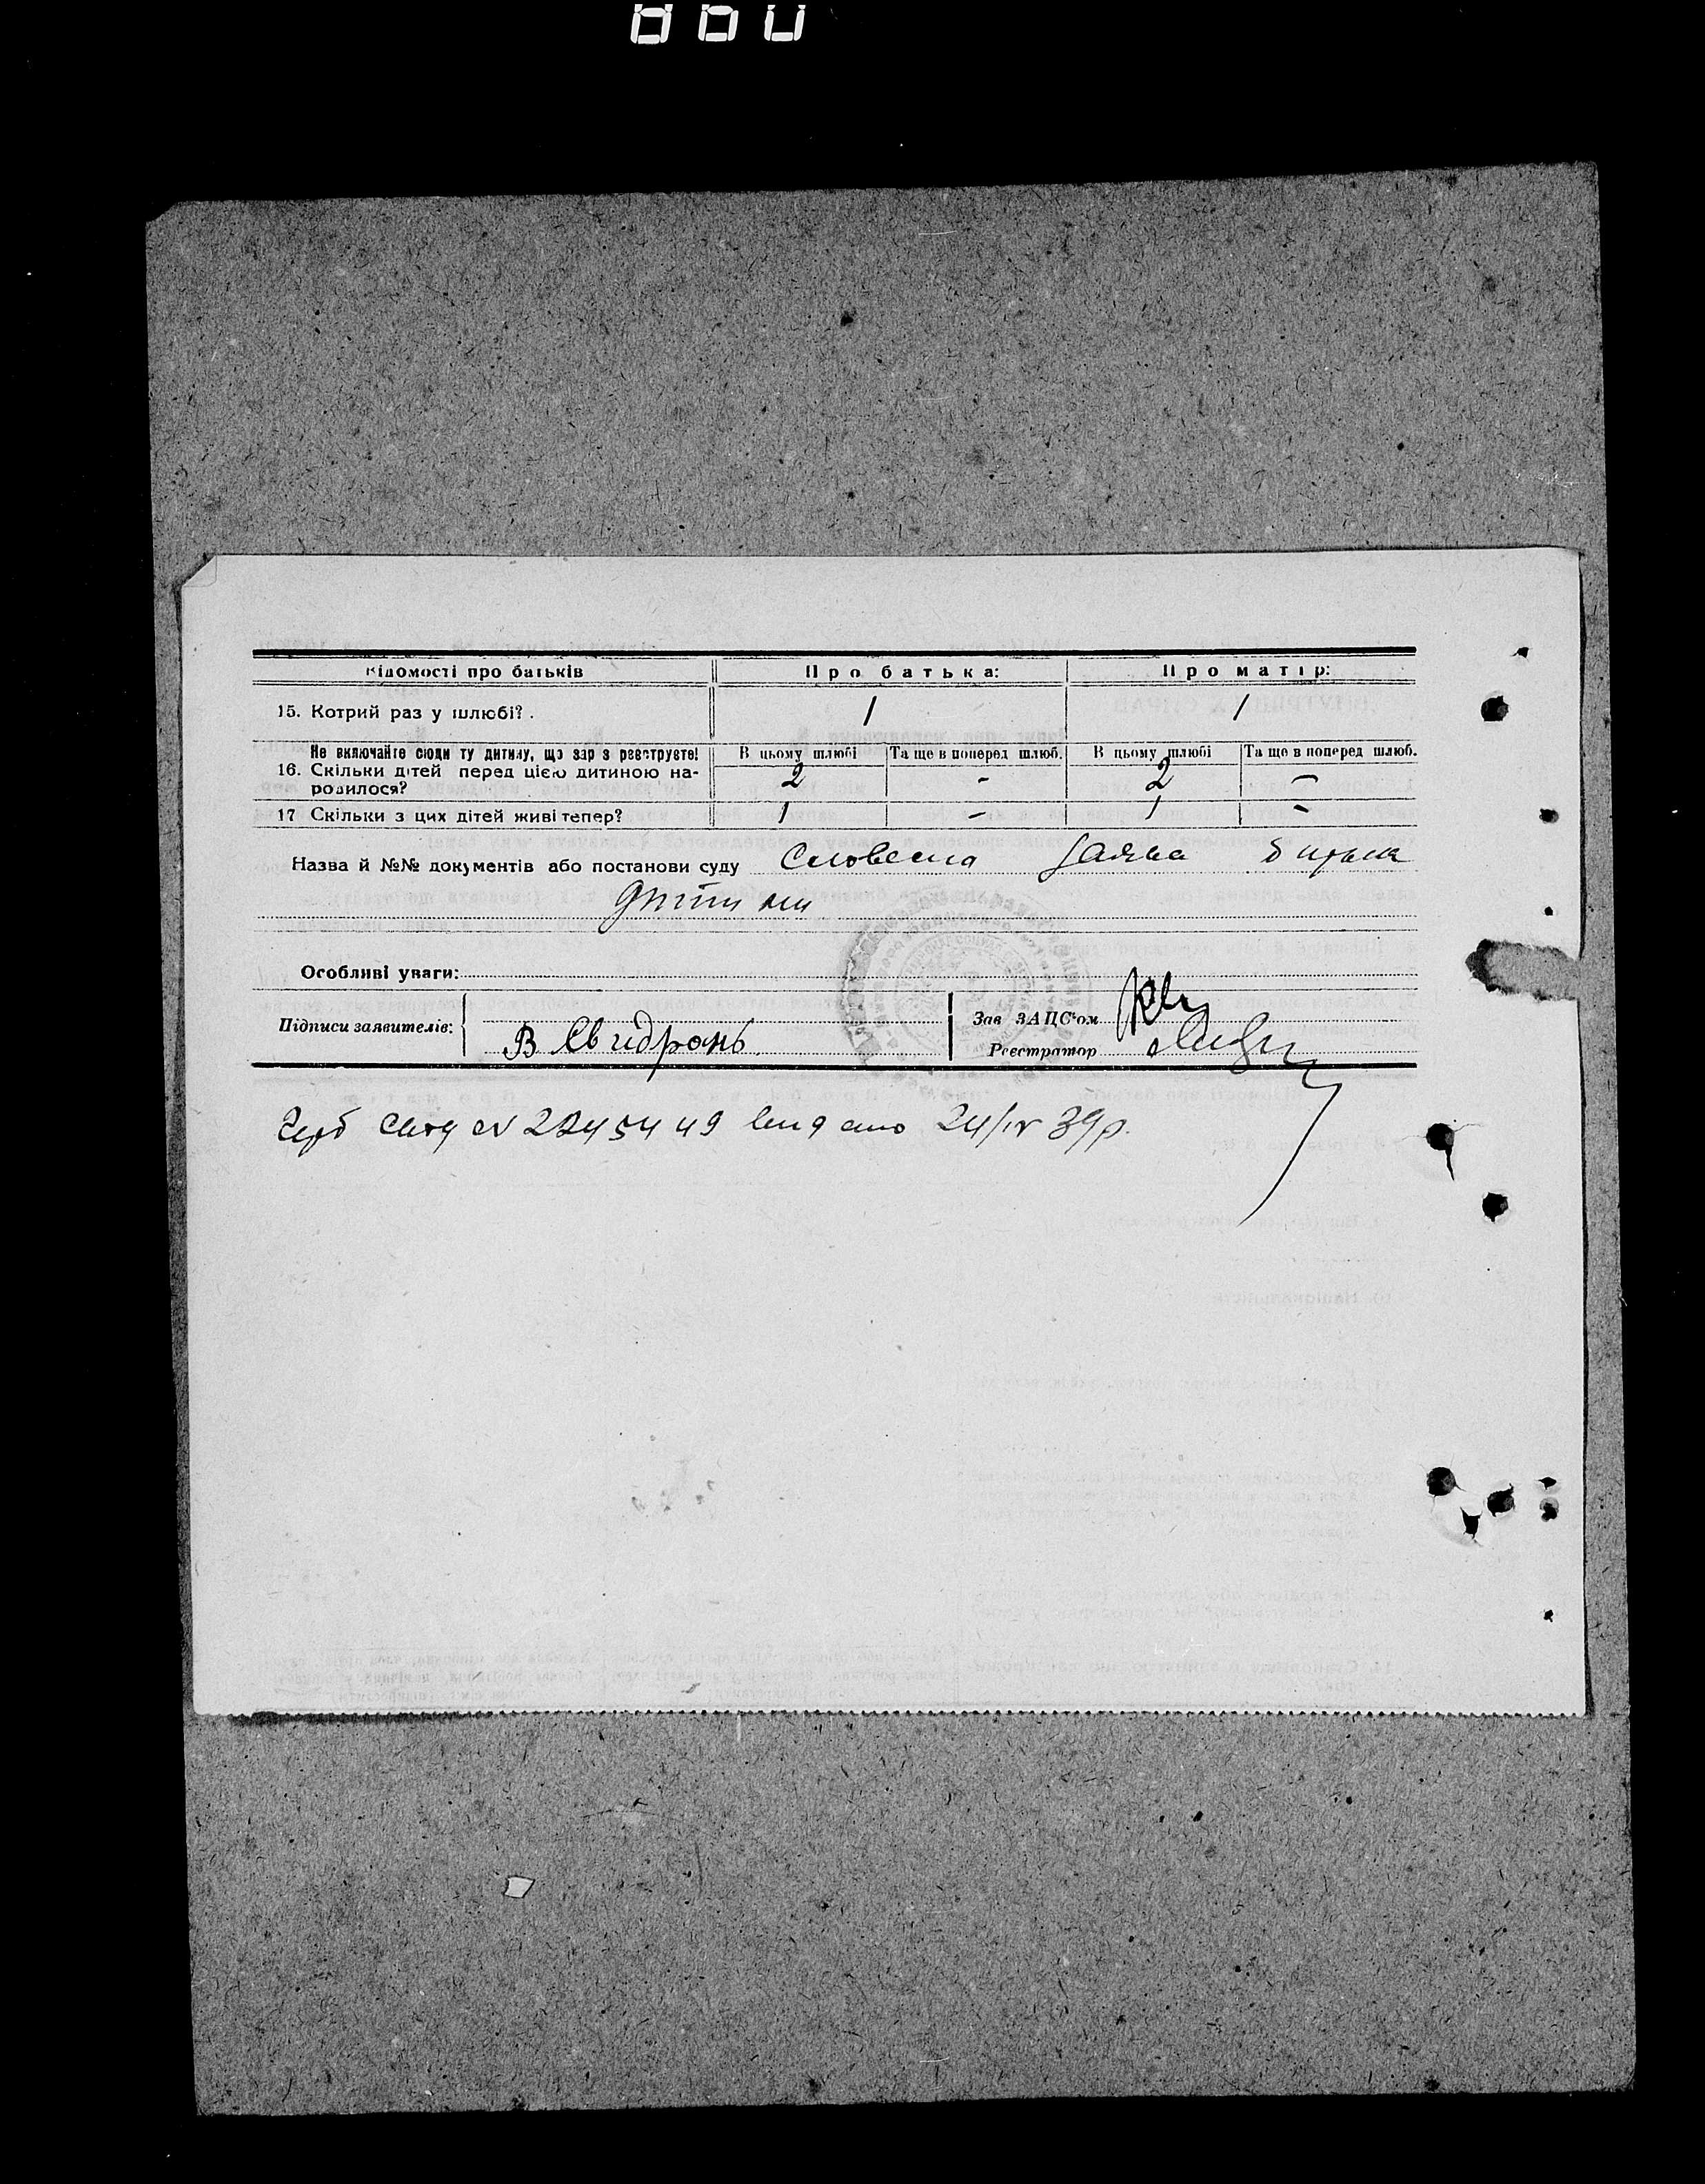 Відомості про батьків Про батька: Про матір:
15. Котрий раз у шлюбі? . 1 1
Не включайте сюди ту дитину, що зараз реєструєте! В цьому шлюбі Та ще в поперед шлюб. В цьому шлюбі Та ще в поперед шлюб.
16. Скільки дітей перед цією дитиною на-
родилося? 2 - 2 -
17 Скільки з цих дітей живі тепер? 1 - 1 -
Назва й №№ документів або постанови суду Словесна заява батька
дитини
Особливі уваги:
Підписи заявителів: В Свидрань
Зав ЗАЦС'ом
Реєстратор
Герб № 2245449 видано 24/IV 39р.